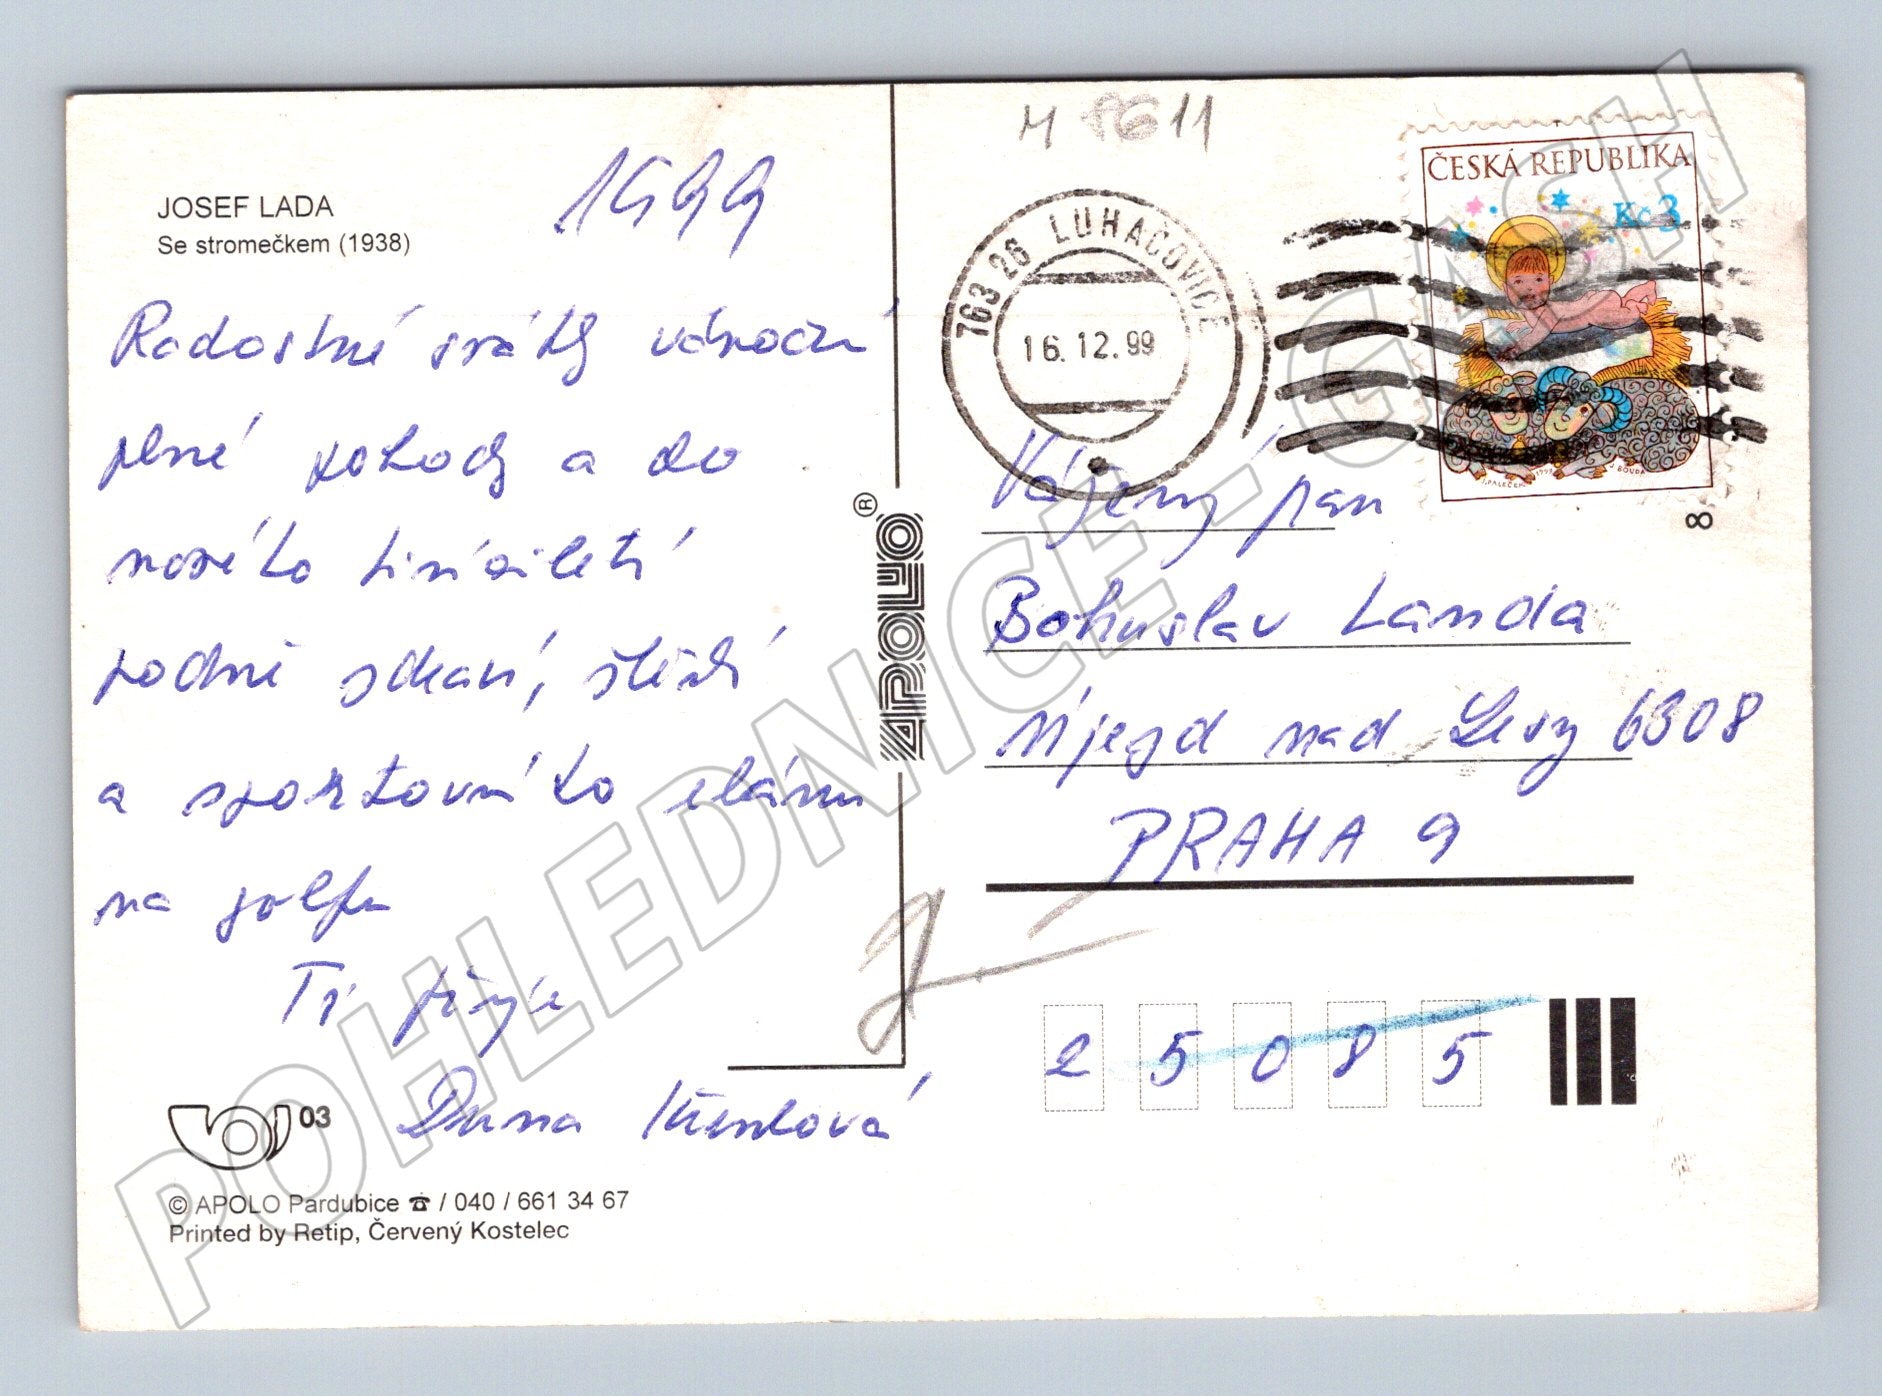 JOSEF LADA
Se stromečkem (1938)
1999
Radostné svátky vánoční
plné pohody a do
nového tisíciletí
hodně zdraví, štěstí
a sportovního elánu
na golfu
Ti přeje
03
© APOLO Pardubice ☎ / 040 / 661 34 67
Printed by Retip, Červený Kostelec
® APOLO
M 8611
763 26 LUHAČOVICE
16. 12. 99
ČESKÁ REPUBLIKA
Kč 3
J. PALEČEK 1999 J. BOUDA
8
Vážený pan
Bohuslav Landa
Újezd nad Lesy 6308
PRAHA 9
2 5 0 8 5
POHLEDNICE - GASH